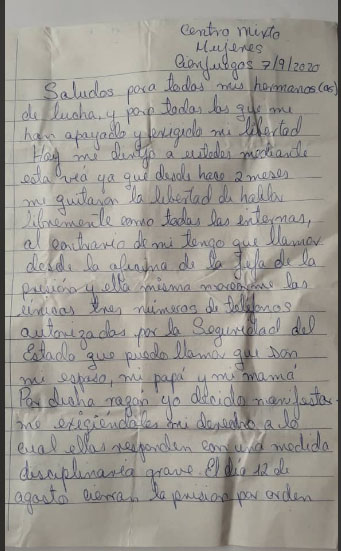 Centro Mixto
Mujeres
Cienfuegos 7/9/2020
Saludos para todas mis hermanos(as)
de lucha, y para todas las que me
han apayado y exigido mi libertad
Hoy me dirijo a ustedes mediante
esta vía ya que desde hace 2 meses
me quitaron la libertad de hablar
libremente como todas las internas,
al contrario de mi tengo que llamar
desde la oficina de la Jefa de la
prisión y ella misma marcarme las
únicas tres números de teléfonos
autorizadas por la Seguridad del
Estado que puedo llamar que son
mi esposo, mi papá y mi mamá
Por dicha razón yo decido manifestar
me exigiéndoles mi derecho a lo
cual ellos responden con una medida
disciplinaria grave. El día 12 de
agosto cierran la prisión por orden